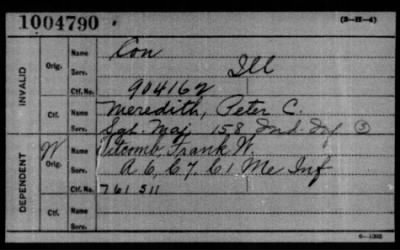 1004790
(3-H-4)
INVALID
Orig.
Name Con
Serv. Ill
Ctf. No. 904162
Ctf.
Name Meredith, Peter C.
Serv. Sgt. Maj 158 Ind. Inf
DEPENDENT
Orig.
Name Witcomb, Frank W.
Serv. A 6, C 7, C 1 Me Inf
Ctf. No. 761511
Ctf.
Name
Serv.